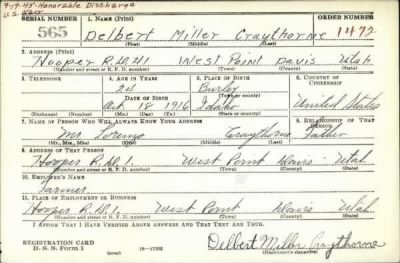 9-19-45-Honorable Discharge
U.S.
SERIAL NUMBER 1. NAME (Print) ORDER NUMBER
565 Delbert Miller Craythorne 1472
(First) (Middle) (Last)
2. ADDRESS (Print)
Hooper R.D.#1 West Point Davis Utah
(Number and street or R. F. D. number) (Town) (County) (State)
3. TELEPHONE 4. AGE IN YEARS 5. PLACE OF BIRTH 6. COUNTRY OF CITIZENSHIP
24 Burley
DATE OF BIRTH (Town or county)
Oct. 18 1916 Idaho United States
(Exchange) (Number) (Mo.) (Day) (Yr.) (State or country)
7. NAME OF PERSON WHO WILL ALWAYS KNOW YOUR ADDRESS 8. RELATIONSHIP OF THAT PERSON
Mr. Lorenzo Craythorne Father
(Mr., Mrs., Miss) (First) (Middle) (Last)
9. ADDRESS OF THAT PERSON
Hooper R.D. 1. West Point Davis Utah
(Number and street or R. F. D. number) (Town) (County) (State)
10. EMPLOYER'S NAME
Farmer
11. PLACE OF EMPLOYMENT OR BUSINESS
Hooper R.D. 1. West Point Davis Utah
(Number and street or R. F. D. number) (Town) (County) (State)
I AFFIRM THAT I HAVE VERIFIED ABOVE ANSWERS AND THAT THEY ARE TRUE.
REGISTRATION CARD
D. S. S. FORM 1 (over) 16-17105 Delbert Miller Craythorne
(Registrant's signature)